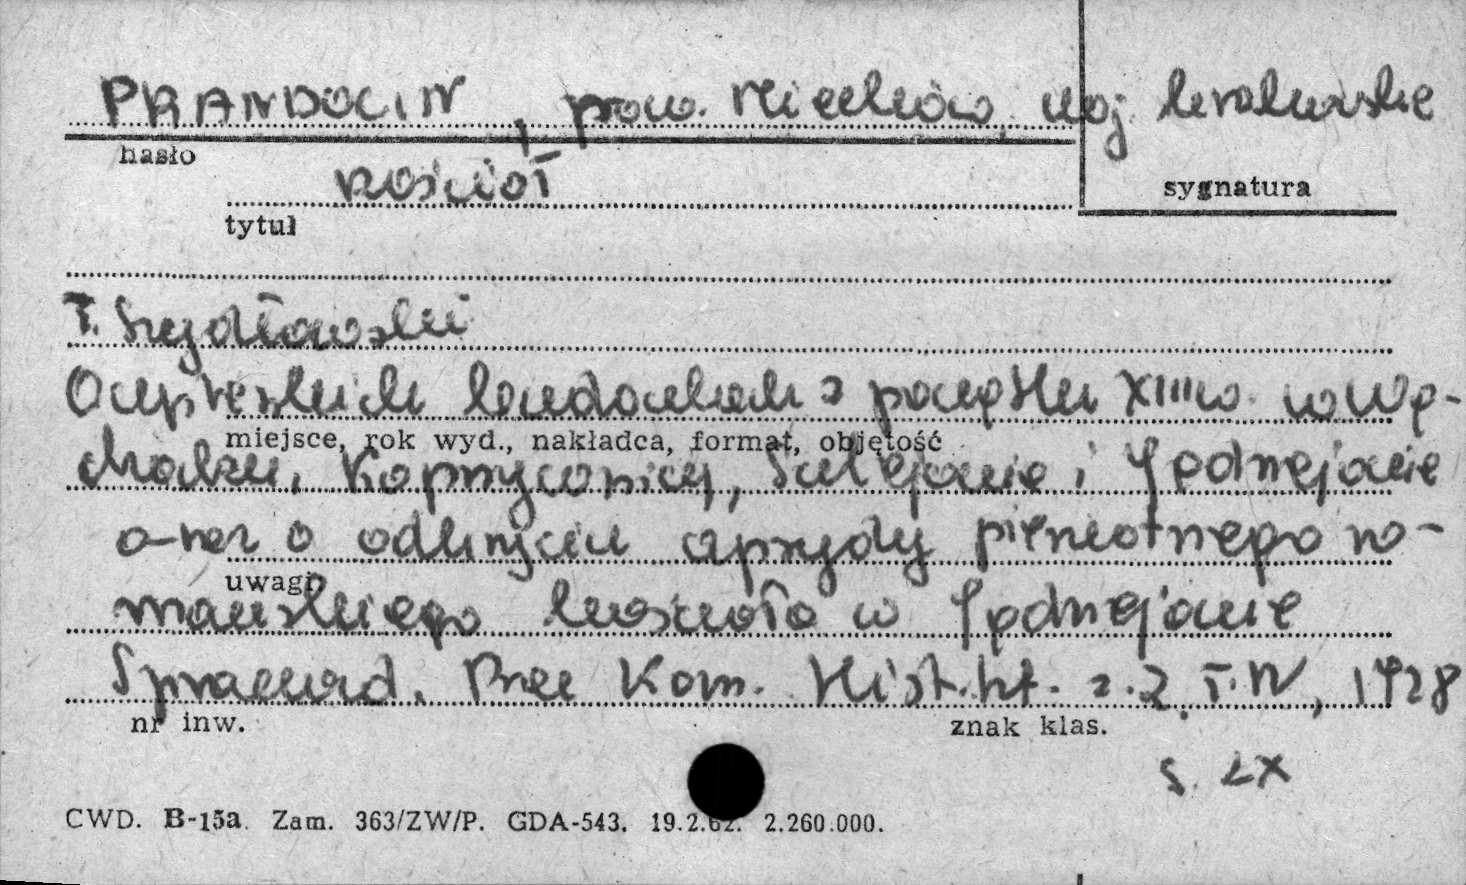 PRANDOCIN, pow. Miechów, woj. krakowskie
hasło
kościół
sygnatura
tytuł
T. Szydłowski
O cysterskich budowlach z początku XIII w. w Wą-
miejsce, rok wyd., nakładca, format, objętość
chocku, Koprzywnicy, Sulejowie i Jędrzejowie
oraz o odkryciu apsydy pierwotnego ro-
uwagi
mańskiego kościoła w Jędrzejowie
Sprawozd. Prac Kom. Hist. Szt. z. 2. T. IV, 1928
nr inw.
znak klas.
s. LX
CWD. B-15a. Zam. 363/ZW/P. GDA-543. 19.2.62. 2.260.000.